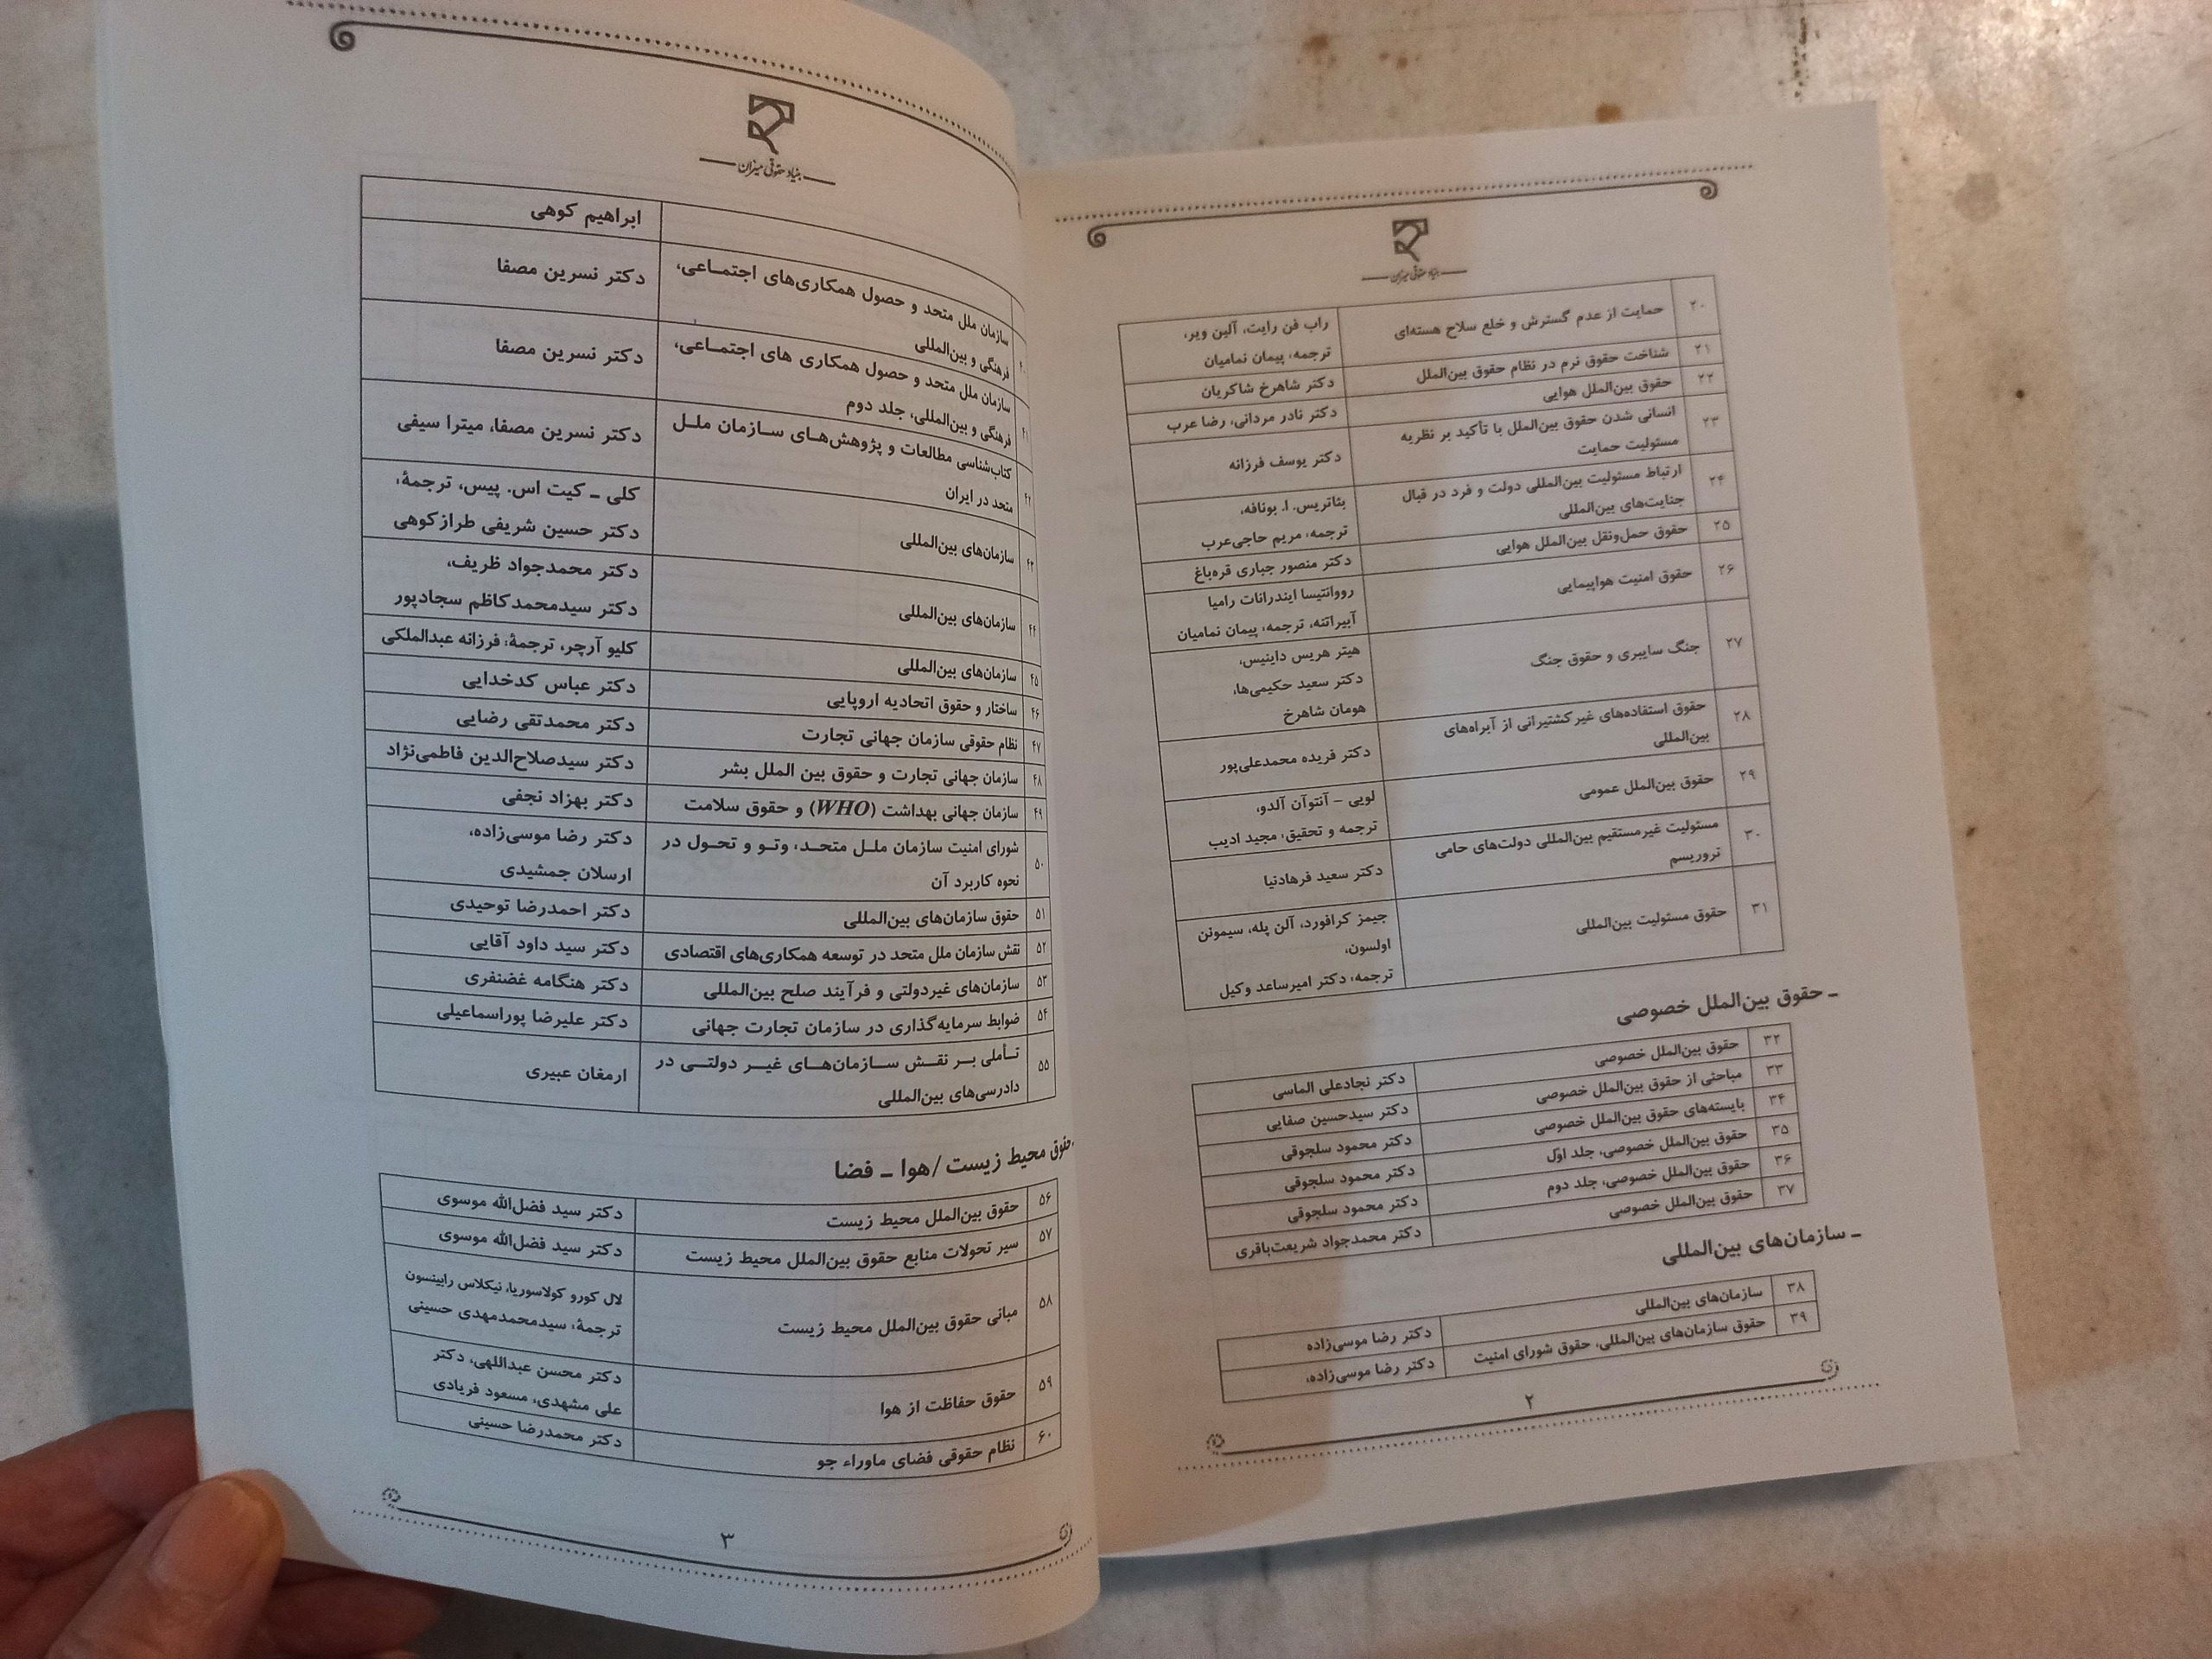 بنیاد حقوقی میزان
۲۰ حمایت از عدم گسترش و خلع سلاح هسته‌ای راب فن رایت، آلین ویر،
ترجمه: پیمان نمامیان
۲۱ شناخت حقوق نرم در نظام حقوق بین‌الملل دکتر شاهرخ شاکریان
۲۲ حقوق بین‌الملل هوایی دکتر نادر مردانی، رضا عرب
۲۳ انسانی شدن حقوق بین‌الملل با تأکید بر نظریه
مسئولیت حمایت دکتر یوسف فرزانه
۲۴ ارتباط مسئولیت بین‌المللی دولت و فرد در قبال
جنایت‌های بین‌المللی بئاتریس. ا. بونافه،
ترجمه: مریم حاجی‌عرب
۲۵ حقوق حمل‌ونقل بین‌الملل هوایی دکتر منصور جباری قره‌باغ
۲۶ حقوق امنیت هواپیمایی رووانتیسا ایندرانات رامیا
آبیراتنه، ترجمه: پیمان نمامیان
۲۷ جنگ سایبری و حقوق جنگ هیتر هریس داینیس،
دکتر سعید حکیمی‌ها،
هومان شاهرخ
۲۸ حقوق استفاده‌های غیرکشتیرانی از آبراه‌های
بین‌المللی دکتر فریده محمدعلی‌پور
۲۹ حقوق بین‌الملل عمومی لویی – آنتوآن آلدو،
ترجمه و تحقیق: مجید ادیب
۳۰ مسئولیت غیرمستقیم بین‌المللی دولت‌های حامی
تروریسم دکتر سعید فرهادنیا
۳۱ حقوق مسئولیت بین‌المللی جیمز کرافورد، آلن پله، سیمونن
اولسون،
ترجمه: دکتر امیرساعد وکیل
ـ حقوق بین‌الملل خصوصی
۳۲ حقوق بین‌الملل خصوصی دکتر نجادعلی الماسی
۳۳ مباحثی از حقوق بین‌الملل خصوصی دکتر سیدحسین صفایی
۳۴ بایسته‌های حقوق بین‌الملل خصوصی دکتر محمود سلجوقی
۳۵ حقوق بین‌الملل خصوصی، جلد اوّل دکتر محمود سلجوقی
۳۶ حقوق بین‌الملل خصوصی، جلد دوم دکتر محمود سلجوقی
۳۷ حقوق بین‌الملل خصوصی دکتر محمدجواد شریعت‌باقری
ـ سازمان‌های بین‌المللی
۳۸ سازمان‌های بین‌المللی دکتر رضا موسی‌زاده
۳۹ حقوق سازمان‌های بین‌المللی، حقوق شورای امنیت دکتر رضا موسی‌زاده،
۲
بنیاد حقوقی میزان
ابراهیم کوهی
سازمان ملل متحد و حصول همکاری‌های اجتمـاعی،
فرهنگی و بین‌المللی دکتر نسرین مصفا
۴۱ سازمان ملل متحد و حصول همکاری های اجتمـاعی،
فرهنگی و بین‌المللی، جلد دوم دکتر نسرین مصفا
۴۲ کتاب‌شناسی مطالعات و پژوهش‌های سازمان ملل
متحد در ایران دکتر نسرین مصفا، میترا سیفی
۴۳ سازمان‌های بین‌المللی کلی ـ کیت اس. پیس، ترجمۀ:
دکتر حسین شریفی طرازکوهی
۴۴ سازمان‌های بین‌المللی دکتر محمدجواد ظریف،
دکتر سیدمحمدکاظم سجادپور
۴۵ سازمان‌های بین‌المللی کلیو آرچر، ترجمۀ: فرزانه عبدالملکی
۴۶ ساختار و حقوق اتحادیه اروپایی دکتر عباس کدخدایی
۴۷ نظام حقوقی سازمان جهانی تجارت دکتر محمدتقی رضایی
۴۸ سازمان جهانی تجارت و حقوق بین الملل بشر دکتر سیدصلاح‌الدین فاطمی‌نژاد
۴۹ سازمان جهانی بهداشت (WHO) و حقوق سلامت دکتر بهزاد نجفی
۵۰ شورای امنیت سازمان ملل متحد، وتو و تحول در
نحوه کاربرد آن دکتر رضا موسی‌زاده،
ارسلان جمشیدی
۵۱ حقوق سازمان‌های بین‌المللی دکتر احمدرضا توحیدی
۵۲ نقش سازمان ملل متحد در توسعه همکاری‌های اقتصادی دکتر سید داود آقایی
۵۳ سازمان‌های غیردولتی و فرآیند صلح بین‌المللی دکتر هنگامه غضنفری
۵۴ ضوابط سرمایه‌گذاری در سازمان تجارت جهانی دکتر علیرضا پوراسماعیلی
۵۵ تأملی بر نقش سازمان‌های غیر دولتی در
دادرسی‌های بین‌المللی ارمغان عبیری
ـ حقوق محیط زیست/هوا ـ فضا
۵۶ حقوق بین‌الملل محیط زیست دکتر سید فضل‌الله موسوی
۵۷ سیر تحولات منابع حقوق بین‌الملل محیط زیست دکتر سید فضل‌الله موسوی
۵۸ مبانی حقوق بین‌الملل محیط زیست لال کورو کولاسوریا، نیکلاس رابینسون
ترجمۀ: سیدمحمدمهدی حسینی
۵۹ حقوق حفاظت از هوا دکتر محسن عبداللهی، دکتر
علی مشهدی، مسعود فریادی
۶۰ نظام حقوقی فضای ماوراء جو دکتر محمدرضا حسینی
۳